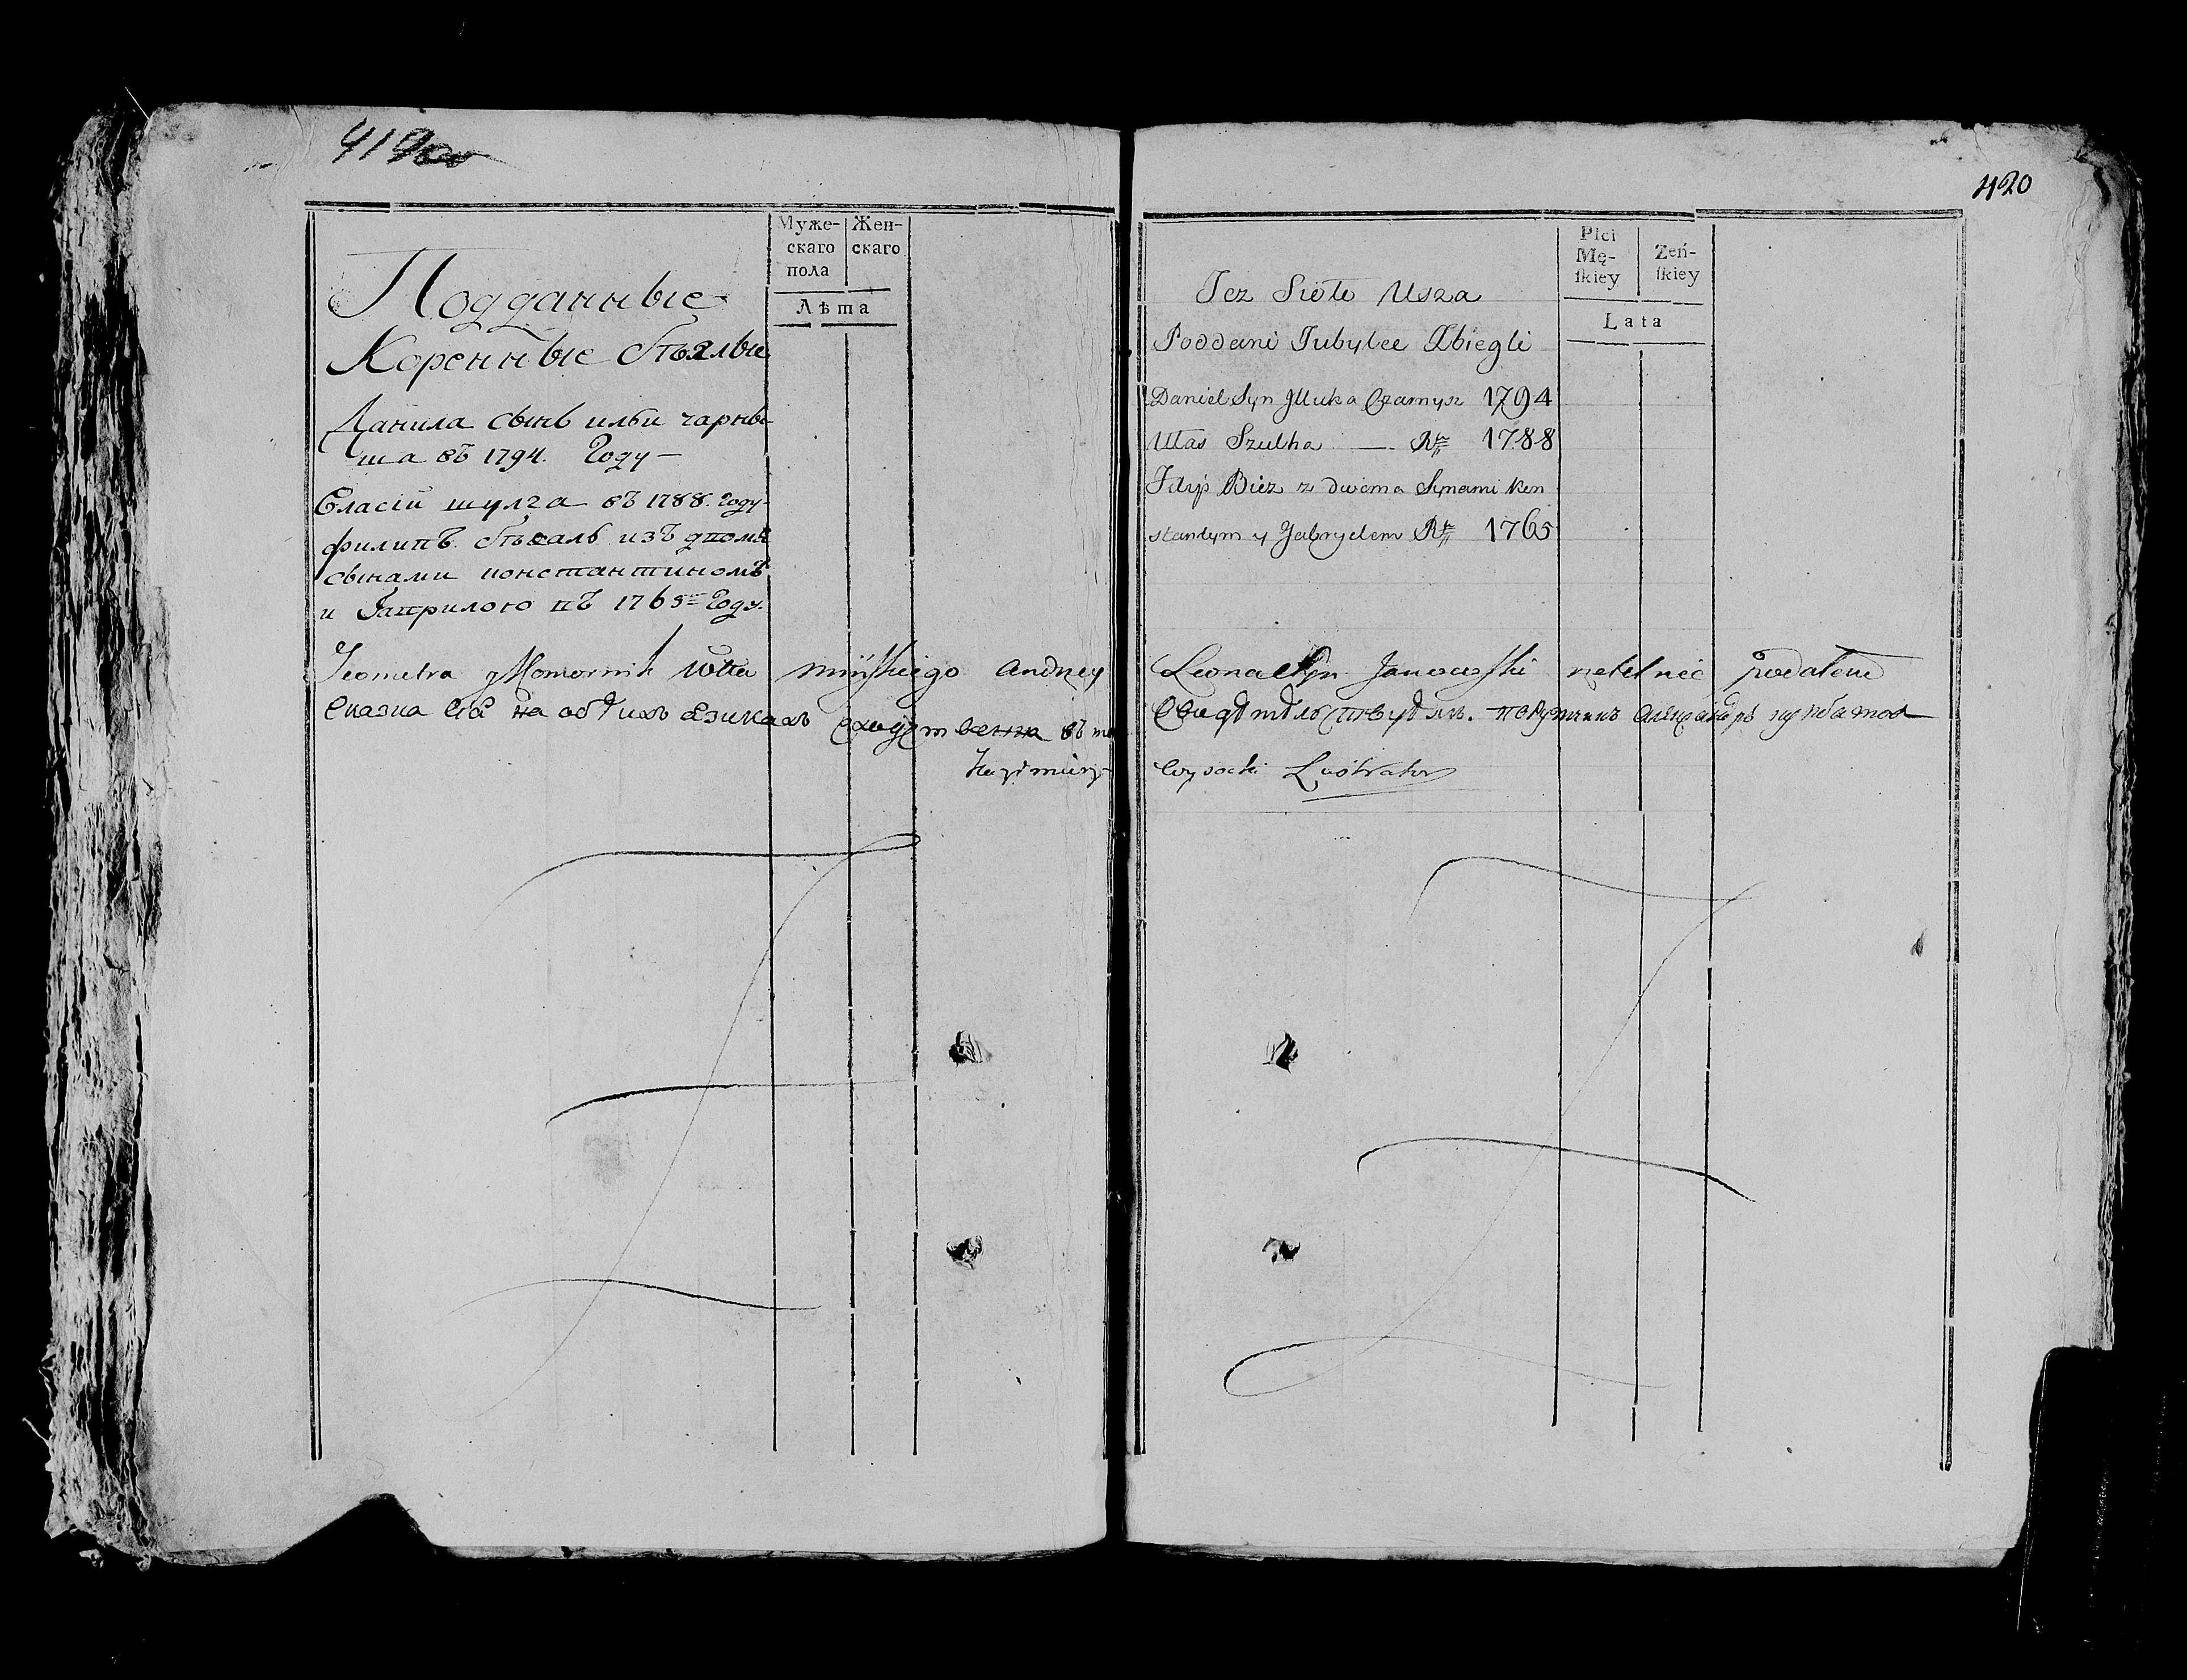 419об
Муже-
скаго
пола
Жен-
скаго
Лѣта
Подданные
Коренные бѣглые
Данила сынъ ильи чарны
ша въ 1794. Году —
Власій шулга въ 1788. Году
филипъ из двома
сынами константиномъ
и Гаврилою въ 1765 Году.
Jeometra y Komornik wttwa mińskiego Andrzey
Сказка сія на обѣихъ языкахъ въ
Kazimierz
420
Płci
Mę-
ſkiey
Żeń-
ſkiey
Lata
Tez Sioło Usza
Poddani Tubylce Zbiegli
Daniel Syn Iluka Czamysz 1794
Ułas Szulha — R 1788
Filip Biez z dwoma Synami Kon
stantym y Gabryelem R 1765
Leona Syn Janowski podatem
Свидѣтельствуемъ. порутчикъ Александръ
Wysocki Lustrator